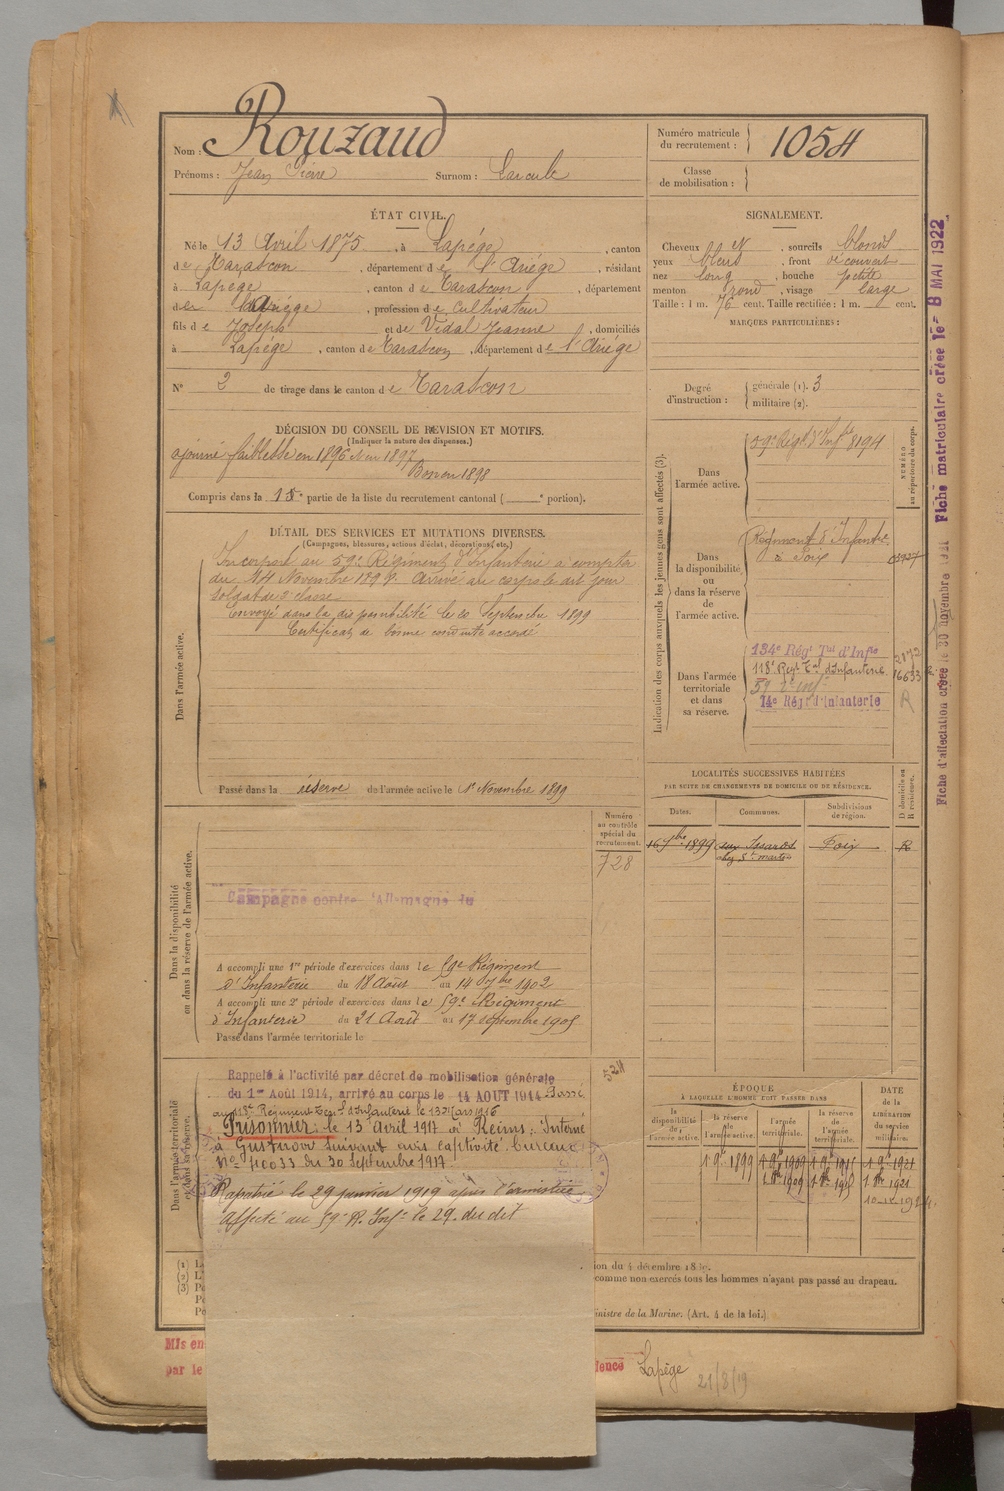 Nom : Rouzaud
Prénoms : Jean Pierre Surnom :
Numéro matricule du recrutement : 1054
Classe de mobilisation :
ÉTAT CIVIL.
Né le 13 Avril 1875, à Lapége, canton
de Tarascon, département de l'Ariége, résidant
à Lapege, canton de Tarascon, département
de, profession de Cultivateur
fils de Joseph et de Vidal Jeanne, domiciliés
à Lapége, canton de Tarascon, département de l'Ariége
N° 2 de tirage dans le canton de Tarascon
SIGNALEMENT.
Cheveux et sourcils blonds
yeux bleus, front découvert
nez long, bouche petite
menton rond, visage large
Taille : 1 m. 76 cent. Taille rectifiée : 1 m. cent.
MARQUES PARTICULIÈRES :
Degré d'instruction : générale (1). 3
militaire (2).
DÉCISION DU CONSEIL DE REVISION ET MOTIFS.
(Indiquer la nature des dispenses.)
ajourné faiblesse en 1896 et en 1897
Bon en 1898
Compris dans la 1re partie de la liste du recrutement cantonal ( e portion).
DÉTAIL DES SERVICES ET MUTATIONS DIVERSES.
(Campagnes, blessures, actions d'éclat, décorations, etc.)
Dans l'armée active.
Incorporé au 59e Régiment d'Infanterie à compter
du 14 Novembre 1898. Arrivé au corps le dit jour
soldat de 2e classe
Envoyé dans la disponibilité le 20 Septembre 1899
Certificat de bonne conduite accordé
Passé dans la réserve de l'armée active le 1er Novembre 1899
Indication des corps auxquels les jeunes gens sont affectés (3).
NUMÉRO au répertoire du corps.
Dans l'armée active.
59e Régt d'Infie 8194
Dans la disponibilité ou dans la réserve de l'armée active.
Régiment d'Infanterie
à Foix
Dans l'armée territoriale et dans sa réserve.
134e Régt Tal d'Infie 2172
118e Regt Tal d'Infanterie 16633
14e Régt d'Infanterie
R
Fiche d'affectation créée le 30 novembre Fiche matriculaire créée le 8 MAI 1922
LOCALITÉS SUCCESSIVES HABITÉES
PAR SUITE DE CHANGEMENTS DE DOMICILE OU DE RÉSIDENCE.
Dates. Communes. Subdivisions de région. D domicile ou R résidence.
16 7bre 1899 aux Issards Foix R
Dans la disponibilité ou dans la réserve de l'armée active.
Numéro au contrôle spécial du recrutement.
728
Campagne contre l'Allemagne du
A accompli une 1re période d'exercices dans le 59e Régiment
d'Infanterie du 18 Août au 14 7bre 1902
A accompli une 2e période d'exercices dans le 59e Régiment
d'Infanterie du 21 Août au 17 septembre 1905
Passé dans l'armée territoriale le
Dans l'armée territoriale et dans sa réserve.
Rappelé à l'activité par décret de mobilisation générale
du 1er Août 1914, arrivé au corps le 14 AOUT 1914 Passé
au 118e Régiment Teral d'Infanterie le 13 Mars 1916
Prisonnier : le 13 Avril 1917 à Reims : Interné
à Gustrow suivant avis captivité bureau
du 30 Septembre 1917.
Rapatrié le 29 janvier 1919 après l'armistice
Affecté au 59e R. Infie le 29 du dit
ÉPOQUE
À LAQUELLE L'HOMME DOIT PASSER DANS
la disponibilité de l'armée active. la réserve de l'armée active. l'armée territoriale. la réserve de l'armée territoriale.
DATE de la LIBÉRATION du service militaire.
1 9bre 1899 1 9bre 1909 1 9bre 1915 1 9bre 1921
(1)
(2)
(3)
comme non exercés tous les hommes n'ayant pas passé au drapeau.
Ministre de la Marine. (Art. 4 de la loi.)
Mis en
par le
Lapège
21/8/19